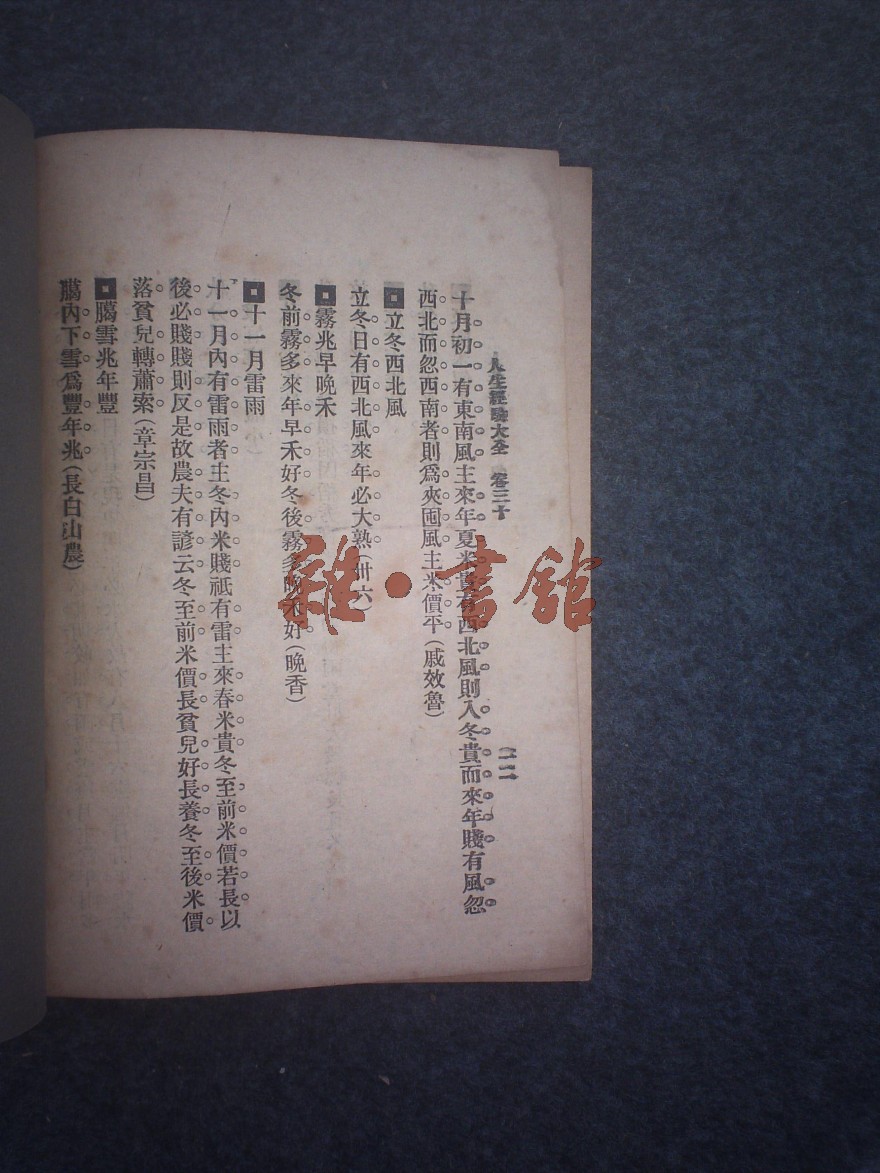 人生經驗大全　卷三十
二二
十月初一有東南風主來年夏米貴有西北風則入冬貴而來年賤有風忽
西北而忽西南者則爲夾囤風主米價平(戚效魯)
立冬西北風
立冬日有西北風來年必大熟(卅六)
霧兆早晚禾
冬前霧多來年早禾好冬後霧多晚禾好(晚香)
十一月雷雨
十一月內有雷雨者主冬內米賤祇有雷主來春米貴冬至前米價若長以
後必賤賤則反是故農夫有諺云冬至前米價長貧兒好長養冬至後米價
落貧兒轉蕭索(章宗昌)
臘雪兆年豐
臘內下雪爲豐年兆(長白山農)
雜·書館